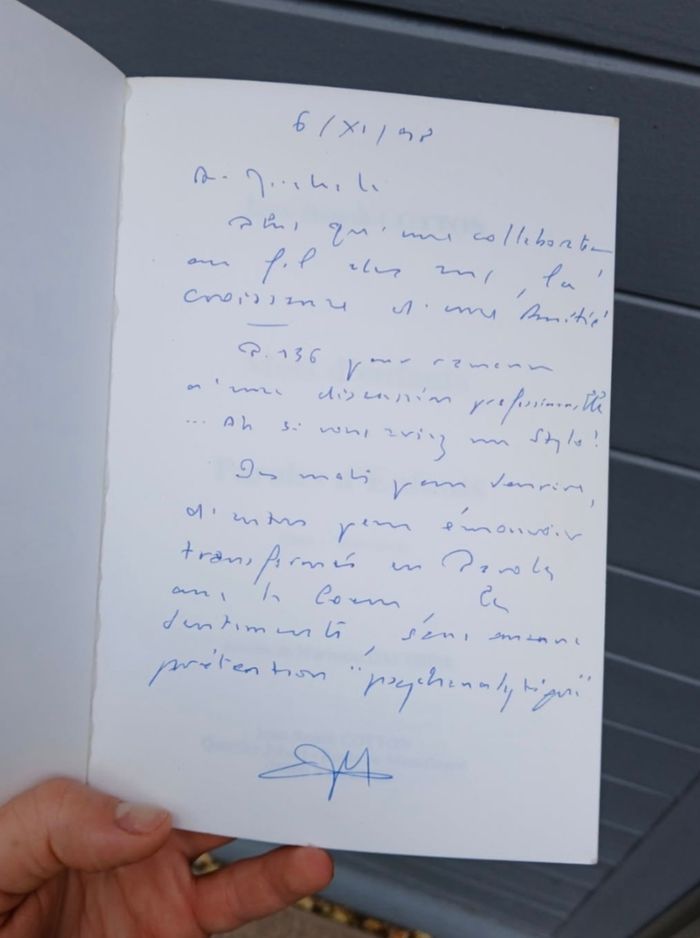 6/XI/98
A Michèle
qu'une collaboration
au fil des ans, la
croissance d'une Amitié
P. 136 pour
d'une discussion professionnelle
... Ah si vous aviez un style!
Des mots pour sourire,
d'autres pour émouvoir
transformés en Parole
avec le Coeur la
sans aucune
prétention "psychanalytique"